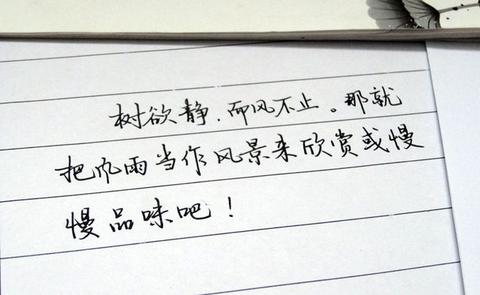 树欲静,而风不止。那就
把风雨当作风景来欣赏或慢
慢品味吧!